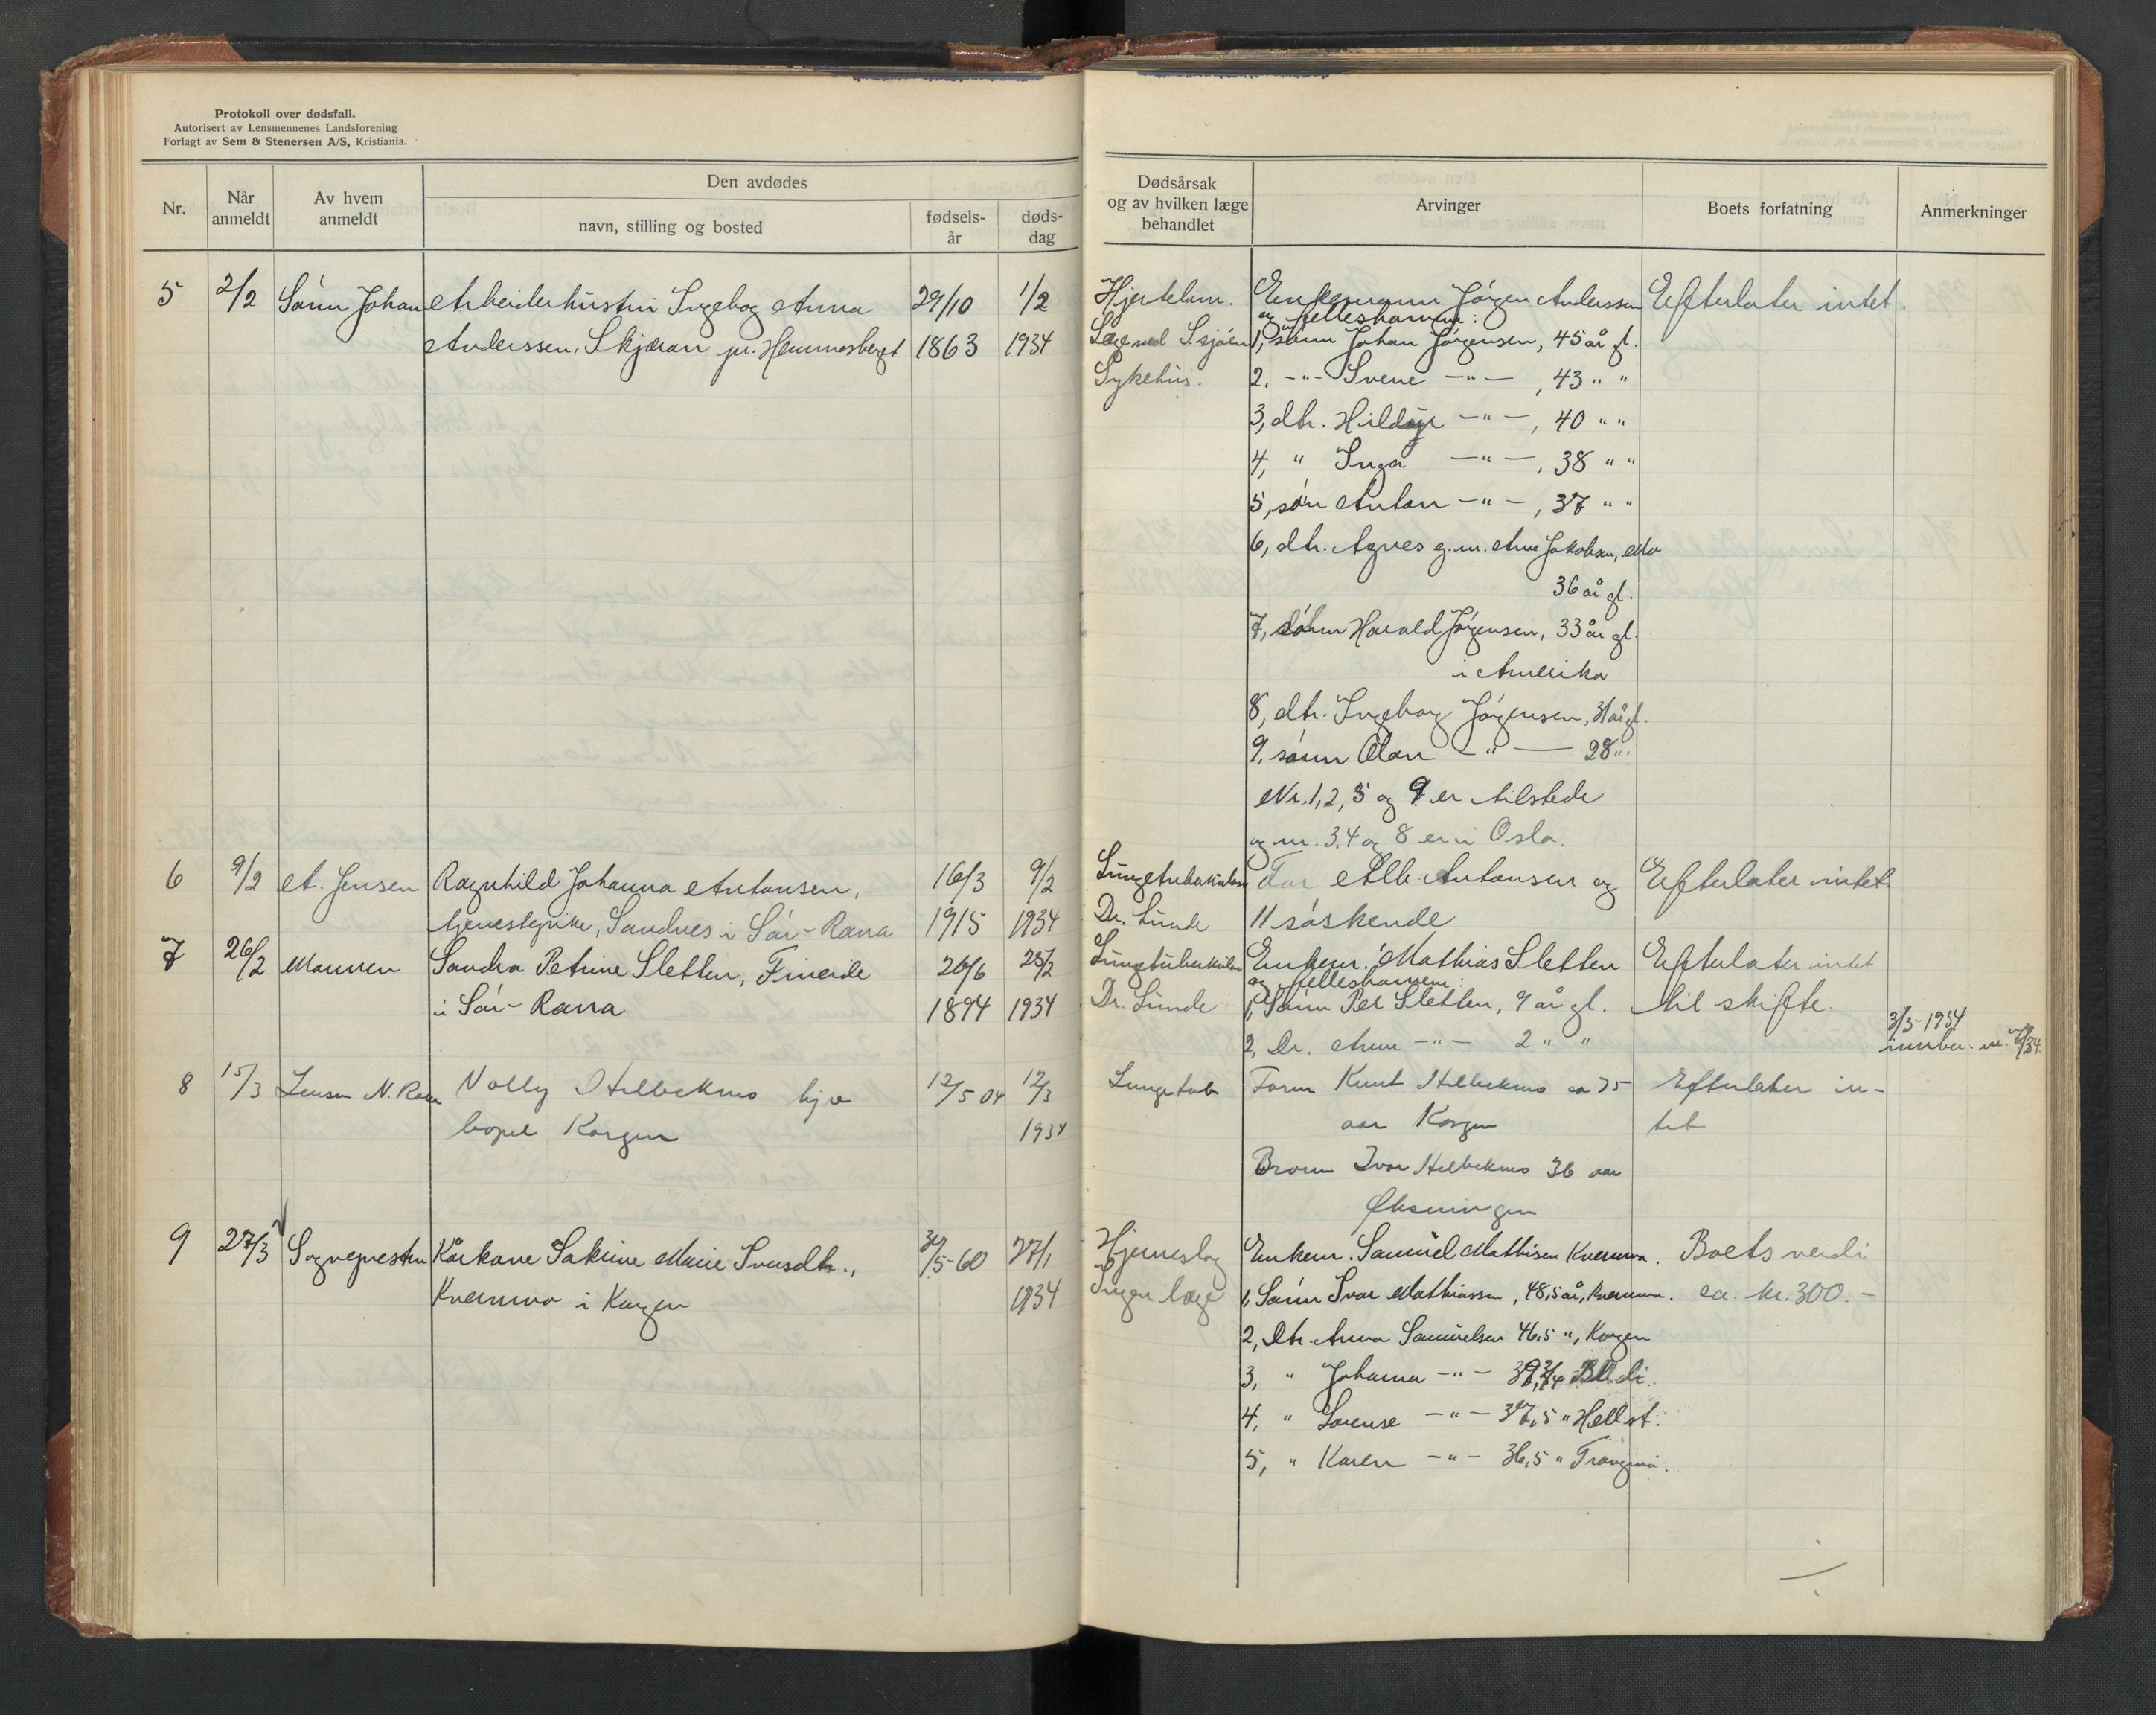 Protokoll over dødsfall.
Autorisert av Lensmennenes Landsforening
Forlagt av Sem & Stenersen A/S, Kristiania.
Nr.
Når anmeldt
Av hvem anmeldt
Den avdødes
navn, stilling og bosted
fødsels-år
døds-dag
Dødsårsak og av hvilken læge behandlet
Arvinger
Boets forfatning
Anmerkninger
5 2/2 Sønn Johan Arbeiderhustru Ingebog Anna 29/10 1/2 Hjertelam. Enkemann Jørgen Anderssen Efterlater intet.
og fellesbarn:
Anderssen, Skjæran pr. Hemnesberget 1863 1934 Læge ved S.sjøen 1, sønn Johan Jørgensen, 45 år gl.
Sykehus. 2. -"- Svene -"- , 43 " "
3, dtr. -"- , 40 " "
4, " Inga -"- , 38 " "
5, søn Anton -"- , 37 " "
6, dtr. Agnes g.m. Arne Jakobsen, Mo
36 år gl.
7, sønn Harald Jørgensen, 33 år gl.
i Amerika
8, dtr. Ingeborg Jørgensen, 31 år gl.
9, sønn Olav -"- 28 "
Nr. 1, 2, 5 og 9 er tilstede
og nr. 3, 4 og 8 er i Oslo.
6 9/2 A. Jensen Ragnhild Johanna Antonsen, 16/3 9/2 Lungetuberkulose Far Alb. Antonsen og Efterlater intet
tjenestepike, Sandnes i Sør-Rana 1915 1934 Dr. Lunde 11 søskende
7 26/2 Mannen Sandra Petrine Sletten, Fineide 26/6 25/2 Lungetuberkulose Enkem. Mathias Sletten Efterlater intet
og fellesbarnene:
i Sør-Rana 1894 1934 Dr. Lunde 1, Sønn Per Sletten, 9 år gl. til skifte.
3/3-1934
2, Dr. Anne -"- 2 " " innber. nr.
8 15/3 Lensm N. Rana Nolly Stellbekmo hjv 12/5 04 12/3 Lungetub Faren Knut Stellbekmo ca 75 Efterlater in-
bopel Korgen 1934 aar Korgen tet
Broren Ivar Stellbekmo 36 aar
Øksningen
9 27/3 Sognepresten Kårkone Sakrine Marie Svensdtr., 30/5-60 27/1 Hjerneslag Enkem. Samuel Mathisen Kvernmo. Boets verdi
Kvernmo i Korgen 1934 Ingen læge 1, Sønn Ivar Mathiassen, 48,5 år, Kvernmo. ca. kr. 300.-
2, Dtr. Anna Samuelsen 46,5 ", Korgen
3, " Johanna -"-
4, " Lorense -"- 37,5 "
5, " Karen -"- 36,5 "